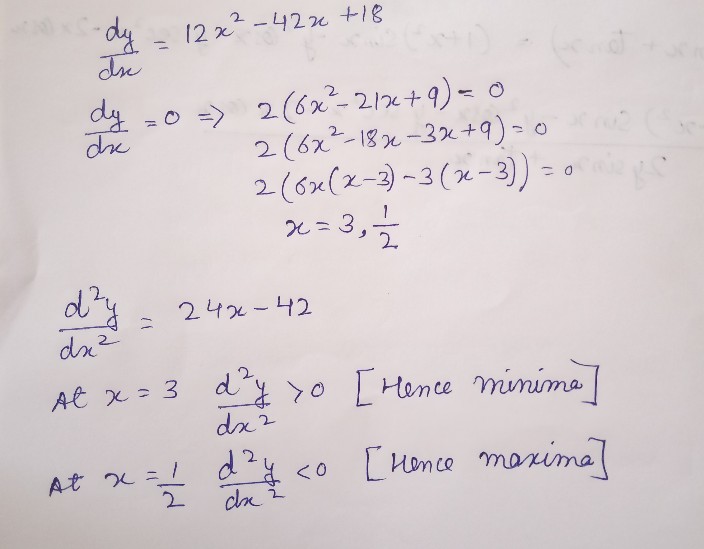 dy/dx = 12x² - 42x + 18
dy/dx = 0 => 2(6x² - 21x + 9) = 0
2(6x² - 18x - 3x + 9) = 0
2(6x(x-3) - 3(x-3)) = 0
x = 3, 1/2
d²y/dx² = 24x - 42
At x = 3 d²y/dx² > 0 [Hence minima]
At x = 1/2 d²y/dx² < 0 [Hence maxima]